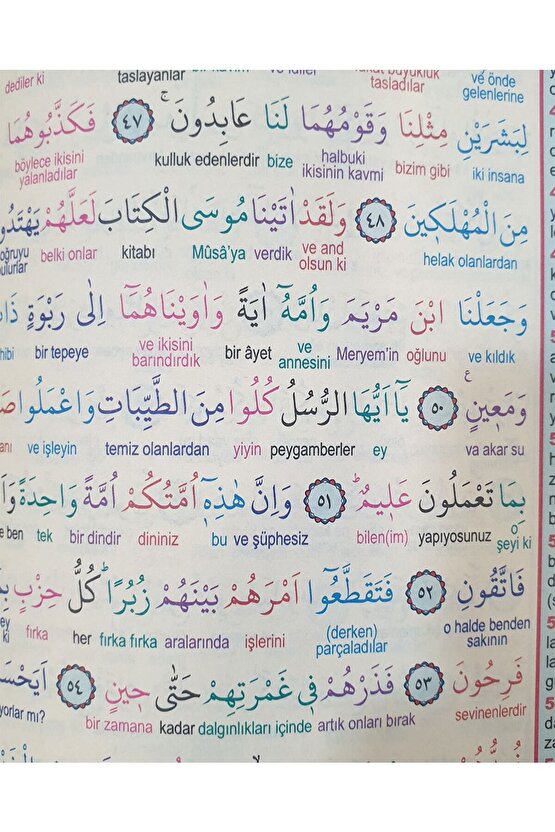 dediler ki taslayanlar tasladılar ve önde gelenlerine
لِبَشَرَيْنِ مِثْلِنَا وَقَوْمُهُمَا لَنَا عَابِدُونَ ﴿٤٧﴾ فَكَذَّبُوهُمَا
iki insana bizim gibi halbuki ikisinin kavmi bize kulluk edenlerdir böylece ikisini yalanladılar
مِنَ الْمُهْلَكِينَ ﴿٤٨﴾ وَلَقَدْ اٰتَيْنَا مُوسَى الْكِتَابَ لَعَلَّهُمْ
helak olanlardan ve and olsun ki verdik Mûsâ'ya kitabı belki onlar
وَجَعَلْنَا ابْنَ مَرْيَمَ وَاُمَّهُٓ اٰيَةً وَاٰوَيْنَاهُمَٓا اِلٰى رَبْوَةٍ
ve kıldık oğlunu Meryem'in ve annesini bir âyet ve ikisini barındırdık bir tepeye
وَمَعِينٍ ﴿٥٠﴾ يَٓا اَيُّهَا الرُّسُلُ كُلُوا مِنَ الطَّيِّبَاتِ وَاعْمَلُوا
va akar su ey peygamberler yiyin temiz olanlardan ve işleyin
بِمَا تَعْمَلُونَ عَلِيمٌ ﴿٥١﴾ وَاِنَّ هٰذِهِٓ اُمَّتُكُمْ اُمَّةً وَاحِدَةً
o şeyi ki yapıyosunuz bilen(im) ve şüphesiz bu dininiz bir dindir tek
فَاتَّقُونِ ﴿٥٢﴾ فَتَقَطَّعُٓوا اَمْرَهُمْ بَيْنَهُمْ زُبُرًا كُلُّ حِزْبٍ
o halde benden sakının (derken) parçaladılar işlerini aralarında fırka fırka her fırka
فَرِحُونَ ﴿٥٣﴾ فَذَرْهُمْ فِي غَمْرَتِهِمْ حَتّٰى حِينٍ ﴿٥٤﴾
sevinenlerdir artık onları bırak dalgınlıkları içinde kadar bir zamana